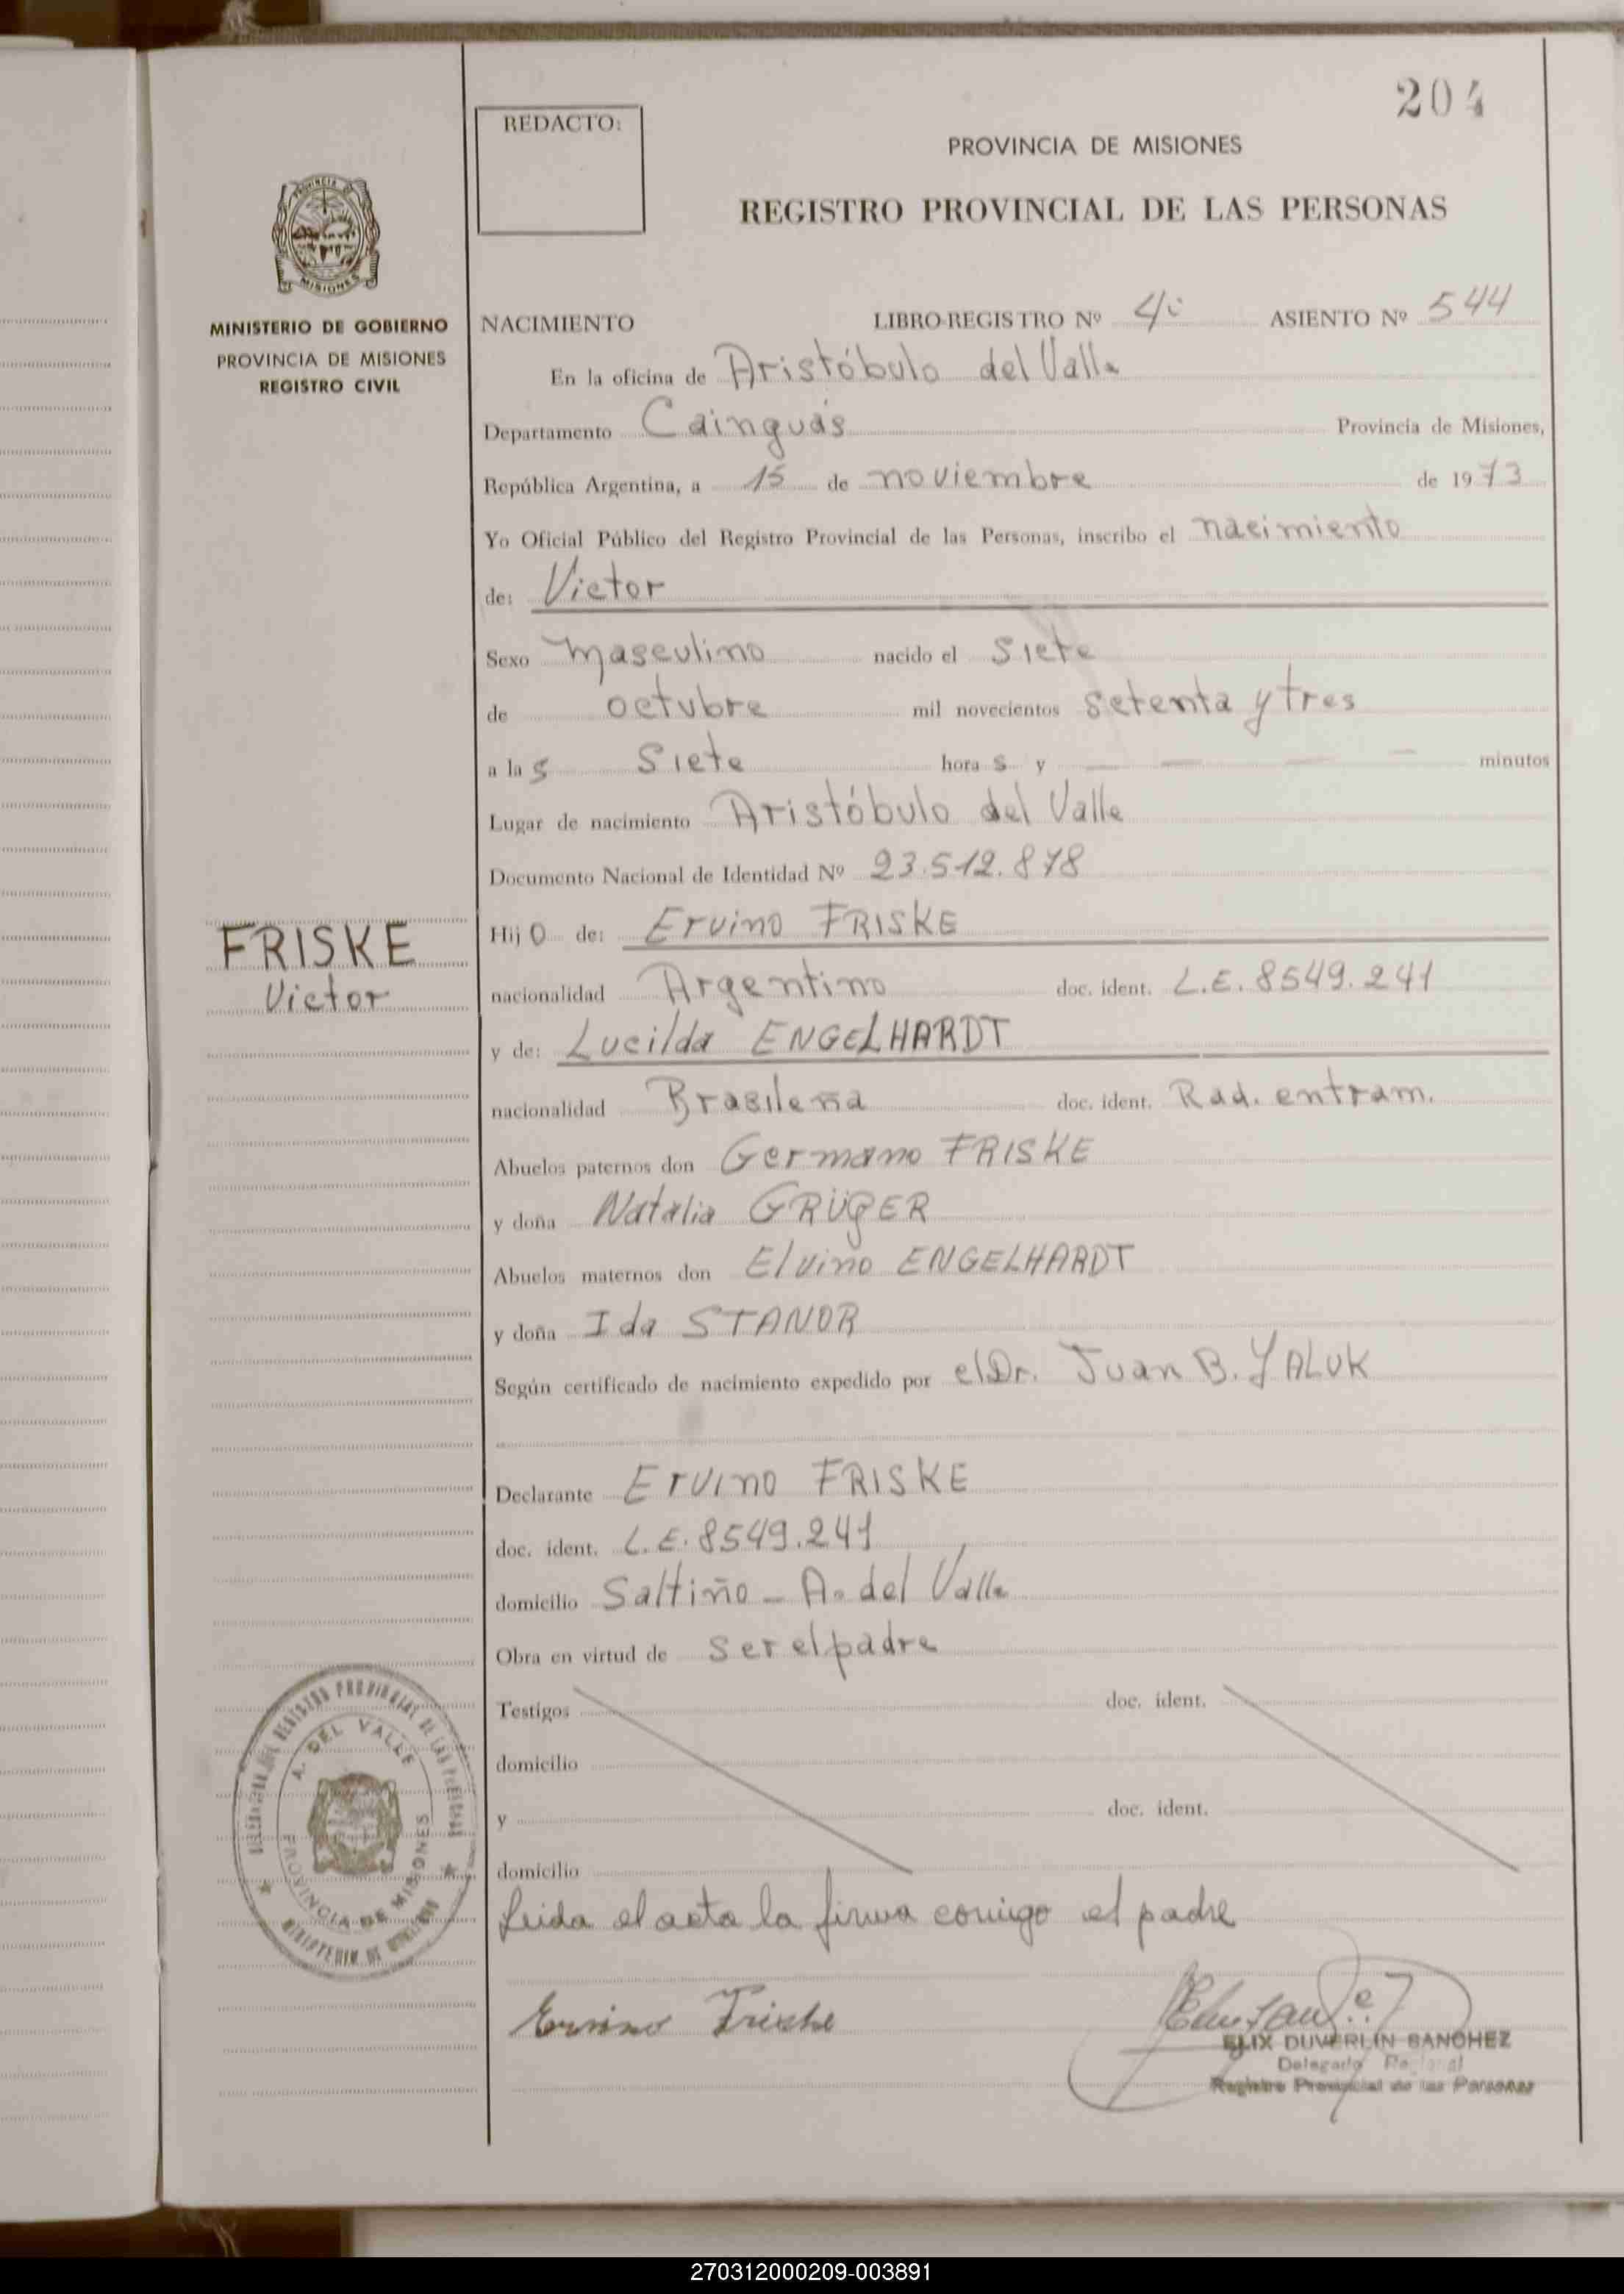 204
REDACTO:
PROVINCIA DE MISIONES
REGISTRO PROVINCIAL DE LAS PERSONAS
PROVINCIA DE
MISIONES
MINISTERIO DE GOBIERNO
PROVINCIA DE MISIONES
REGISTRO CIVIL
NACIMIENTO LIBRO-REGISTRO Nº 4º ASIENTO Nº 544
En la oficina de Aristóbulo del Valle
Departamento Cainguás Provincia de Misiones,
República Argentina, a 15 de noviembre de 1973
Yo Oficial Público del Registro Provincial de las Personas, inscribo el nacimiento
de: Victor
Sexo masculino nacido el siete
de octubre mil novecientos setenta y tres
a las siete horas y — — — — minutos
Lugar de nacimiento Aristóbulo del Valle
Documento Nacional de Identidad Nº 23.512.878
FRISKE
Victor
Hijo de: Ervino FRISKE
nacionalidad Argentino doc. ident. L.E. 8549.241
y de: Lucilda ENGELHARDT
nacionalidad Brasileña doc. ident. Rad. entram.
Abuelos paternos don Germano FRISKE
y doña Natalia GRÜGER
Abuelos maternos don Elvino ENGELHARDT
y doña Ida STANOR
Según certificado de nacimiento expedido por el Dr. Juan B. YALUK
Declarante Ervino FRISKE
doc. ident. L.E. 8549.241
domicilio Saltiño - A. del Valle
Obra en virtud de ser el padre
Testigos doc. ident.
domicilio
y doc. ident.
domicilio
REGISTRO PROVINCIAL DE LAS PERSONAS
A. DEL VALLE
PROVINCIA DE MISIONES
MINISTERIO DE GOBIERNO
Leida el acta la firma comigo el padre
Ervino Friske
ELIX DUVERLIN SANCHEZ
Delegado Regional
Registro Provincial de las Personas
270312000209-003891